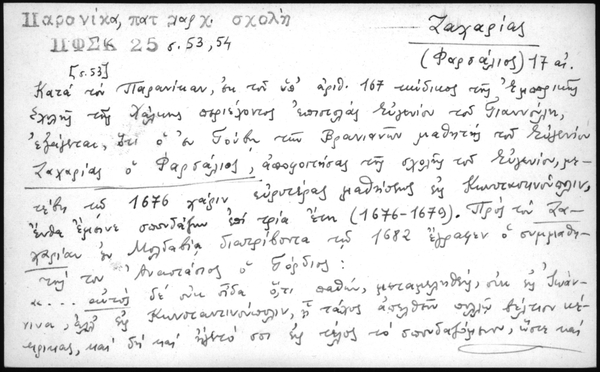 Παρανίκα, πατριαρχ. σχολή
ΠΦΣΚ 25 σ. 53, 54
Ζαχαρίας
(Φαρσάλιος) 17 αἰ.
[σ. 53]
Κατὰ τὸν Παρανίκαν, ἐκ τοῦ ὑπ' ἀριθ. 167 κώδικος τῆς Ἐμπορικῆς
Σχολῆς τῆς Χάλκης περιέχοντος ἐπιστολὰς Εὐγενίου τοῦ Γιαννούλη,
ἐξάγεται, ὅτι ὁ ἐν Γούβᾳ τῶν Βρανιανῶν μαθητὴς τοῦ Εὐγενίου
Ζαχαρίας ὁ Φαρσάλιος, ἀποφοιτήσας τῆς σχολῆς τοῦ Εὐγενίου, με-
τέβη τῷ 1676 χάριν εὐρυτέρας μαθήσεως εἰς Κωνσταντινούπολιν,
ἔνθα ἔμεινε σπουδάζων ἐπὶ τρία ἔτη (1676-1679). Πρὸς τὸν Ζα-
χαρίαν ἐν Μολδαβίᾳ διατρίβοντα τῷ 1682 ἔγραφεν ὁ συμμαθη-
τής του Ἀναστάσιος ὁ Γόρδιος:
«... αὐτὸς δὲ οὐκ οἶδα ὅ,τι παθών, μεταμεληθείς, οὐκ εἰς Ἰωάν-
νινα, ἀλλ' εἰς Κωνσταντινούπολιν, ᾗ τάχος ἀπελθεῖν πολλῷ βέλτιον κέ-
κρικας, καὶ δὴ καὶ σοι εἰς τέλος τὸ σπουδαζόμενον, ὥστε καὶ